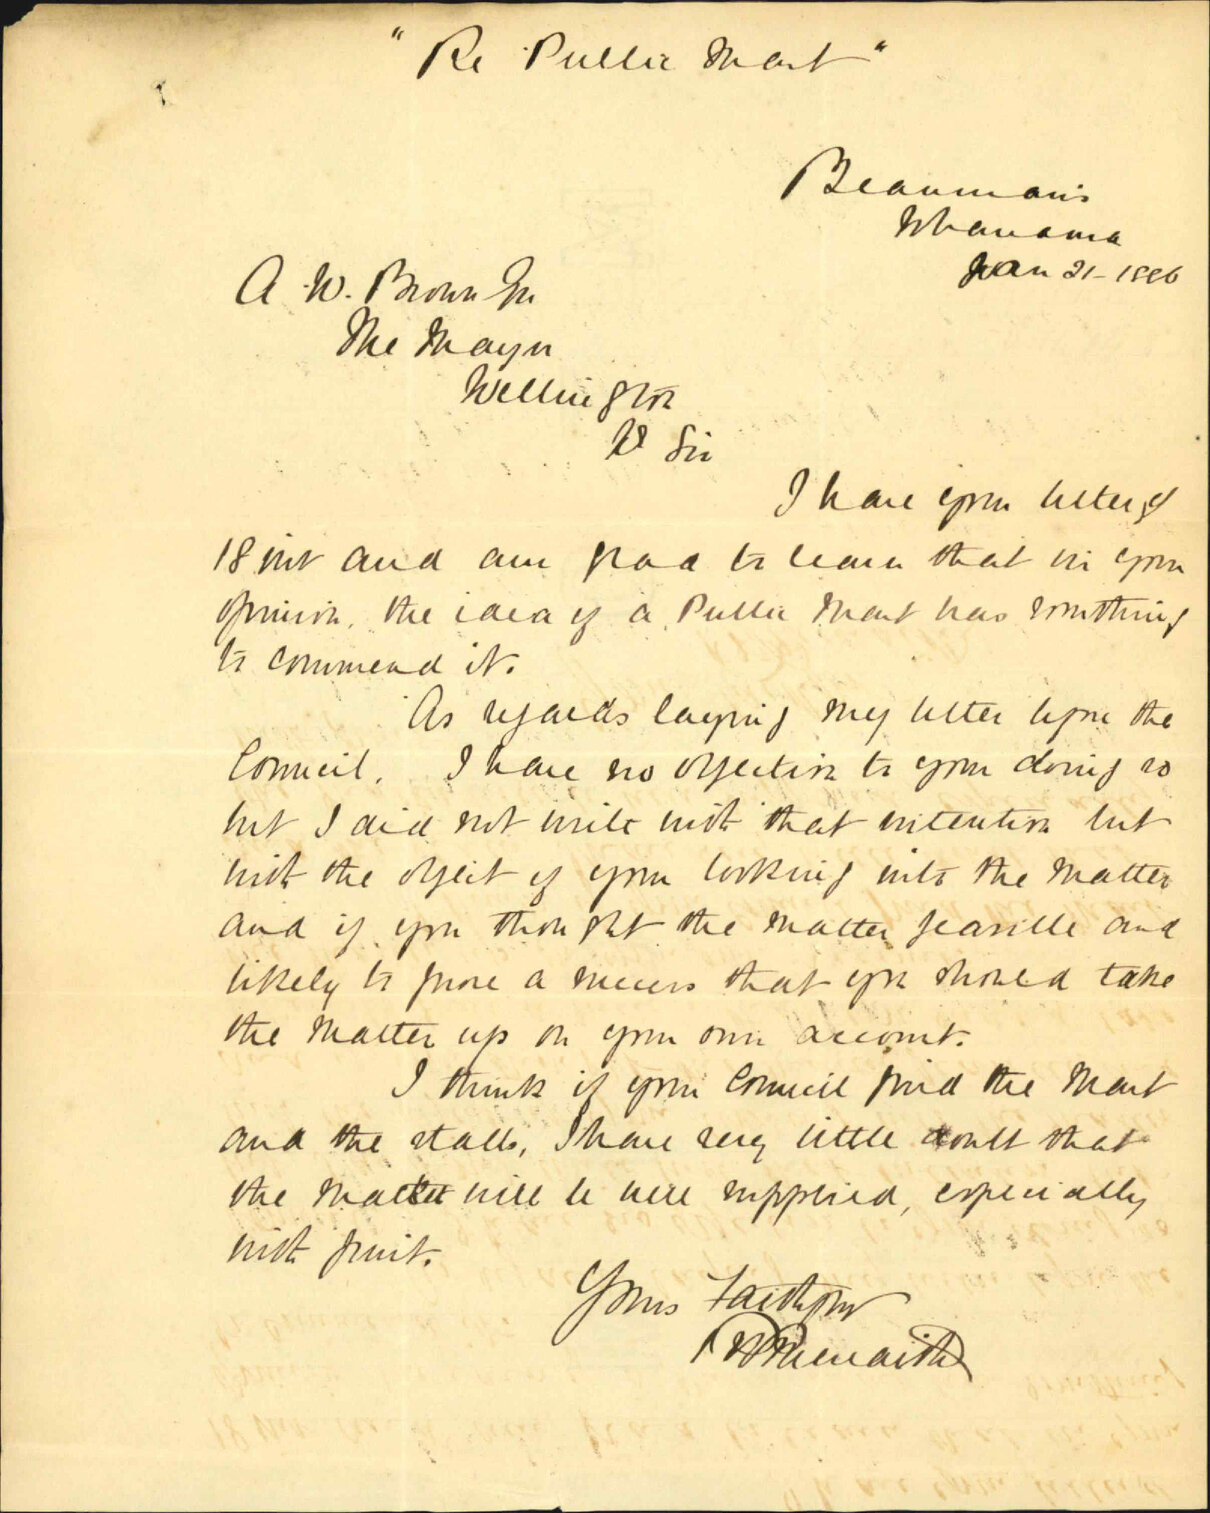 "Re Public Mart"
Beaumaris
Whanama
Jan 21-1886
A. W. Brown Esq
The Mayor
Wellington
Dr Sir
I have your letter of
18 inst and am glad to learn that in your
opinion, the idea of a Public Mart has something
to commend it.
As regards laying my letter before the
Council. I have no objection to your doing so
but I did not write with that intention but
with the object of your looking into the matter
and if you thought the matter feasible and
likely to prove a success that you should take
the matter up on your own account.
I think if your Council find the Mart
and the stalls, I have very little doubt that
the Market will be well supplied, especially
with fruit.
Yours Faithfully